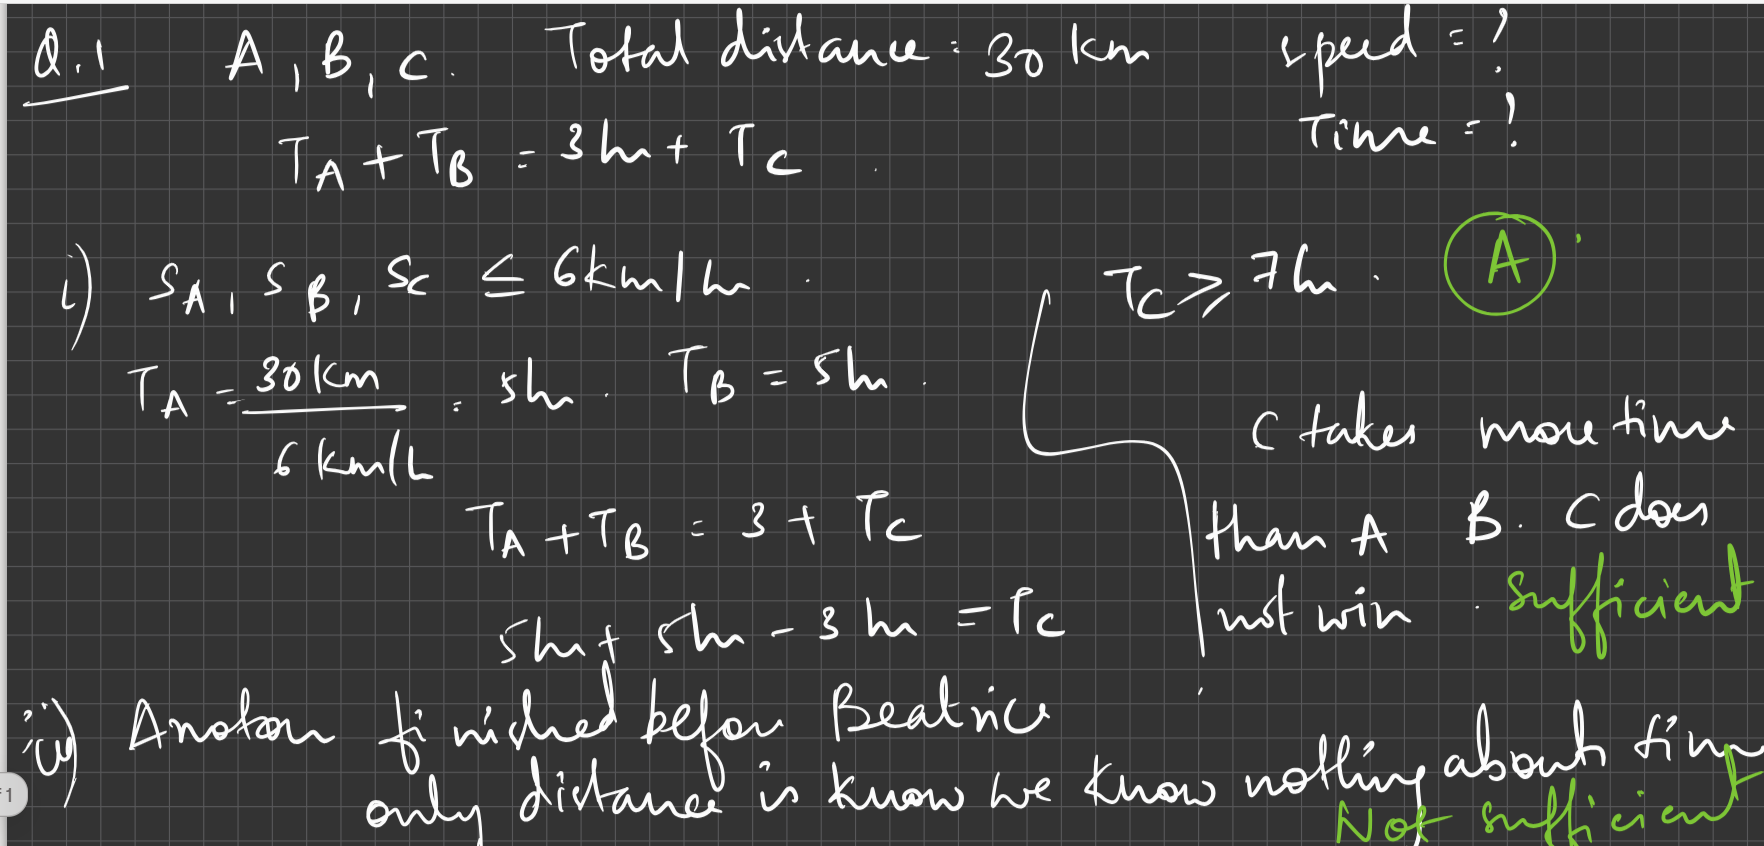 Q.1 A, B, C. Total distance = 30 km speed = ?
TA + TB = 3hr + TC Time = ?
i) SA, SB, SC ≤ 6km/hr. TC ≥ 7hr. A
TA = 30km / 6km/h = 5hr. TB = 5hr.
C takes more time
TA + TB = 3 + TC
than A B. C does
5hr + 5hr - 3hr = TC
not win. Sufficient
ii) finished before Beatrice
only distance is know we know nothing about time
Not sufficient